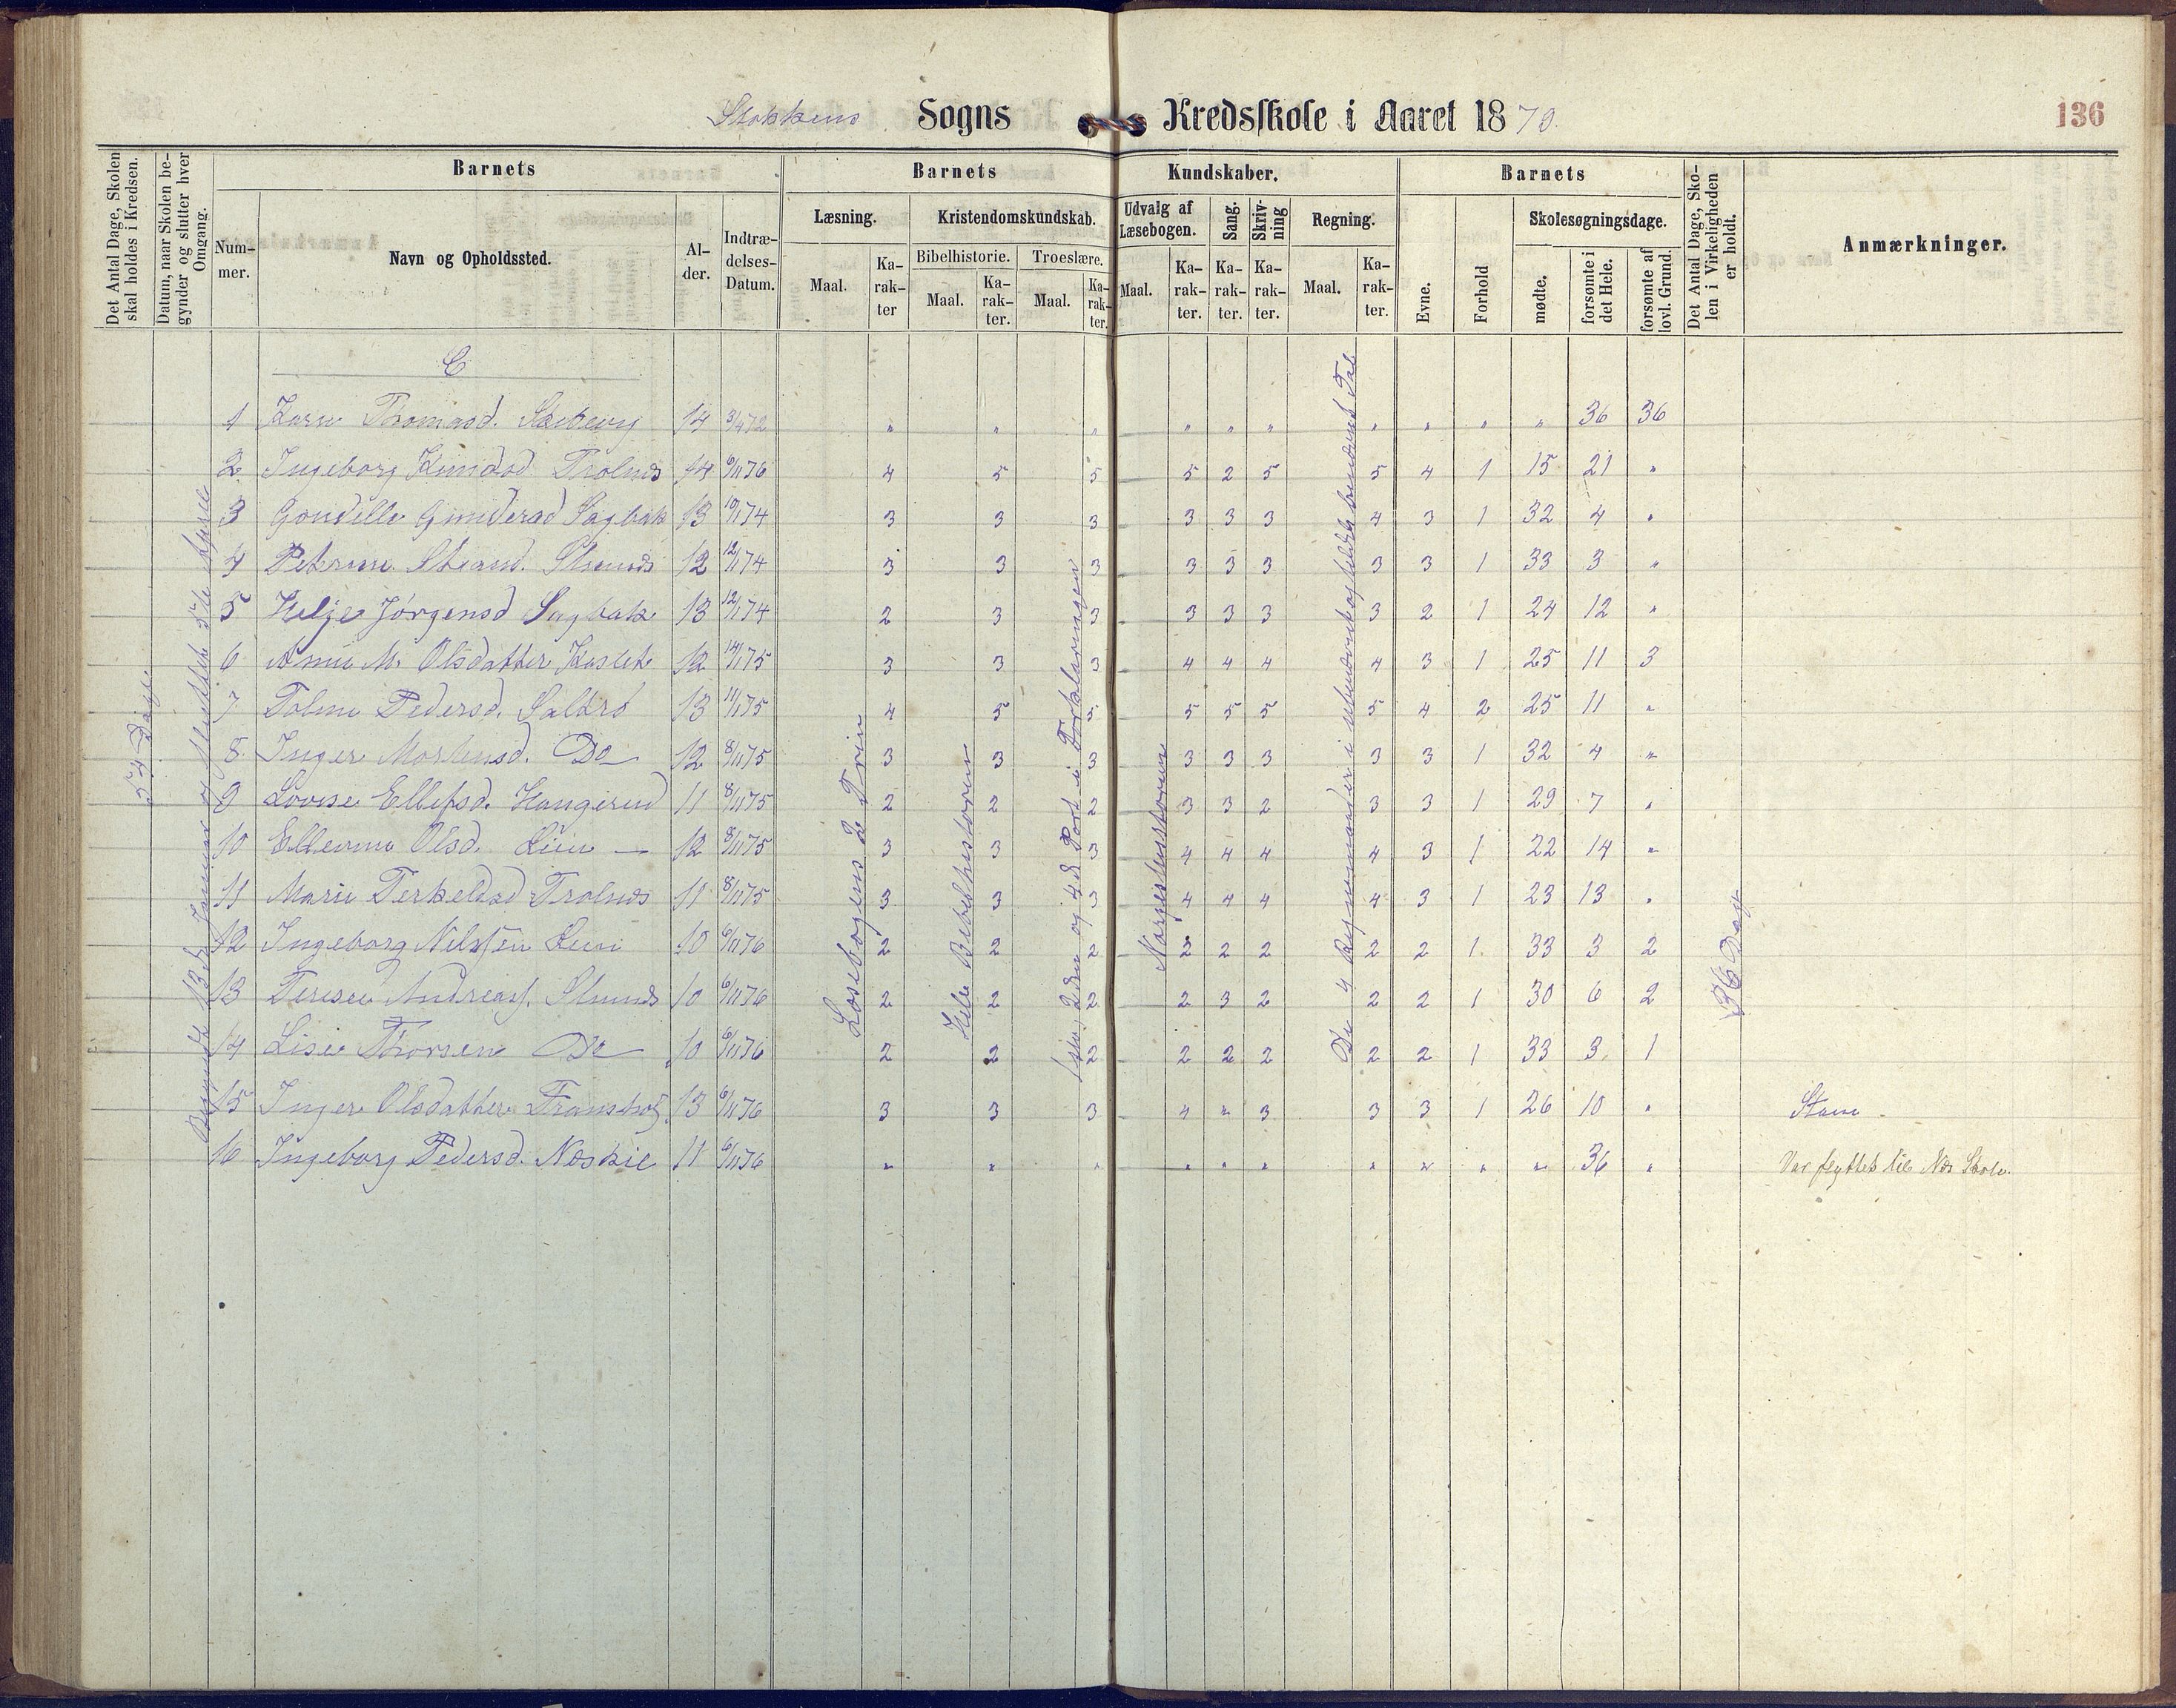 Stokkens Sogns Kredsskole i Aaret 1879.
136
Det Antal Dage, Skolen skal holdes i Kredsen.
Datum, naar Skolen begynder og slutter hver Omgang.
Barnets
Nummer.
Navn og Opholdssted.
Alder.
Indtrædelses-Datum.
Barnets Kundskaber.
Læsning.
Maal.
Karakter
Kristendomskundskab.
Bibelhistorie.
Maal.
Karakter.
Troeslære.
Maal.
Karakter.
Udvalg af Læsebogen.
Maal.
Karakter.
Sang.
Karakter.
Skrivning
Karakter.
Regning.
Maal.
Karakter.
Barnets
Evne.
Forhold
Skolesøgningsdage.
mødte.
forsømte i det Hele.
forsømte af lovl. Grund.
Det Antal Dage, Skolen i Virkeligheden er holdt.
Anmærkninger.
54 Dage.
Begyndt 13de Januar og sluttet 5te April
Læsebogens 2 Trin
Hele Bibelhistorien
1ste, 2den og 4de Part i Forklaringen
Norgeshistorien
De 4 Regningsarter i ubenævnte og heldt benævnte Tal
36 Dage
C
1 Karen Thomasd. 14 3/4 72 " " " " " " " " " " 36 36
2. Ingeborg Knudsd Trolnes 14 6/1176 4 5 5 5 2 5 5 4 1 15 21 "
3 Gondille Gundersd Sagbak 13 10/174 3 3 3 3 3 3 4 3 1 32 4 "
4 Peterine 12 12/174 3 3 3 3 3 3 3 3 1 33 3 "
5 Helje Jørgensd Sagbak 13 12/174 2 3 3 3 3 3 3 2 1 24 12 "
6 Anne M. Olsdatter 12 14/175 3 3 3 4 4 4 4 3 1 25 11 3
7 Toline Pedersd. Saltrø 13 11/175 4 5 5 5 5 5 5 4 2 25 11 "
8 Inger Mortensd. Do 12 8/1175 3 3 3 3 3 3 3 3 1 32 4 "
9 Lovise Ellefsd. Hangerud 11 8/1175 2 2 2 3 3 2 3 3 1 29 7 "
10 Ellevine Olsd. Lien — 12 8/1175 3 3 3 4 4 4 4 3 1 22 14 "
11 Marie Terkeldsd Trolnes 11 8/1175 3 3 3 4 4 4 4 3 1 23 13 "
12 Ingeborg Nilssen Lien 10 6/1176 2 2 2 2 2 2 2 2 1 33 3 2
13 Terese Andreass. 10 6/1176 2 2 2 2 3 2 2 2 1 30 6 2
14 Lise Thorsen Do 10 6/1176 2 2 2 2 2 2 2 2 1 33 3 1
15 Inger Olsdatter 13 6/1176 3 3 3 4 " 3 3 3 1 26 10 "
16 Ingeborg Pedersd. Neskil 11 6/1176 " " " " " " " " " " 36 " Var flyttet til Nes Skole.